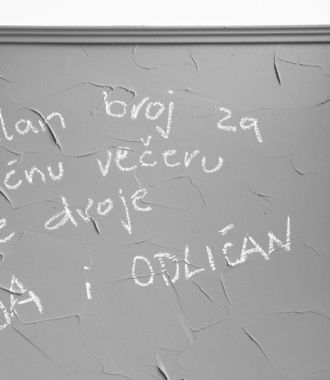 lan broj za
čnu večeru
e dvoje
A i ODLIČAN